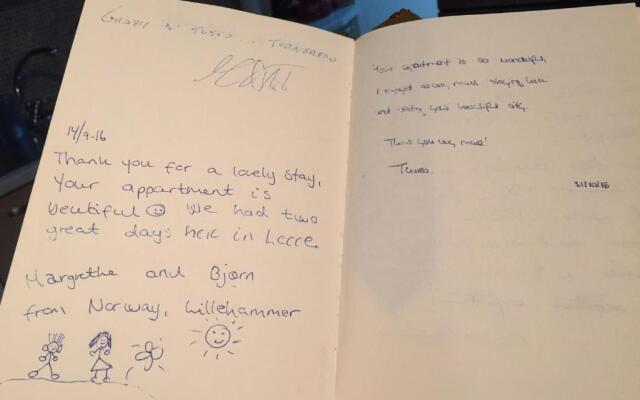 GRAZIE DI TUTTO... TORNEREMO
14/9-16
Thank you for a lovely stay,
Your appartment is
beutiful We had two
great days here in Lecce.
Margrethe and Bjørn
from Norway, Lillehammer
Your apartment is so wonderful,
I enjoyed so very much staying here
and visiting your beautiful city.
Thank you very much!
31/10/16